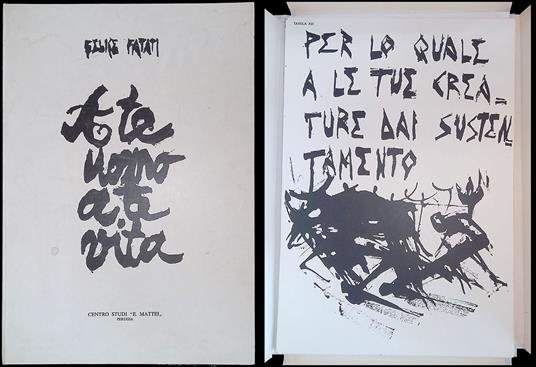 FELICE FATATI
A te
uomo
a te
vita
CENTRO STUDI "E. MATTEI"
PERUGIA
TAVOLA XVI
PER LO QUALE
A LE TUE CREA_
TURE DAI SUSTEN_
TAMENTO